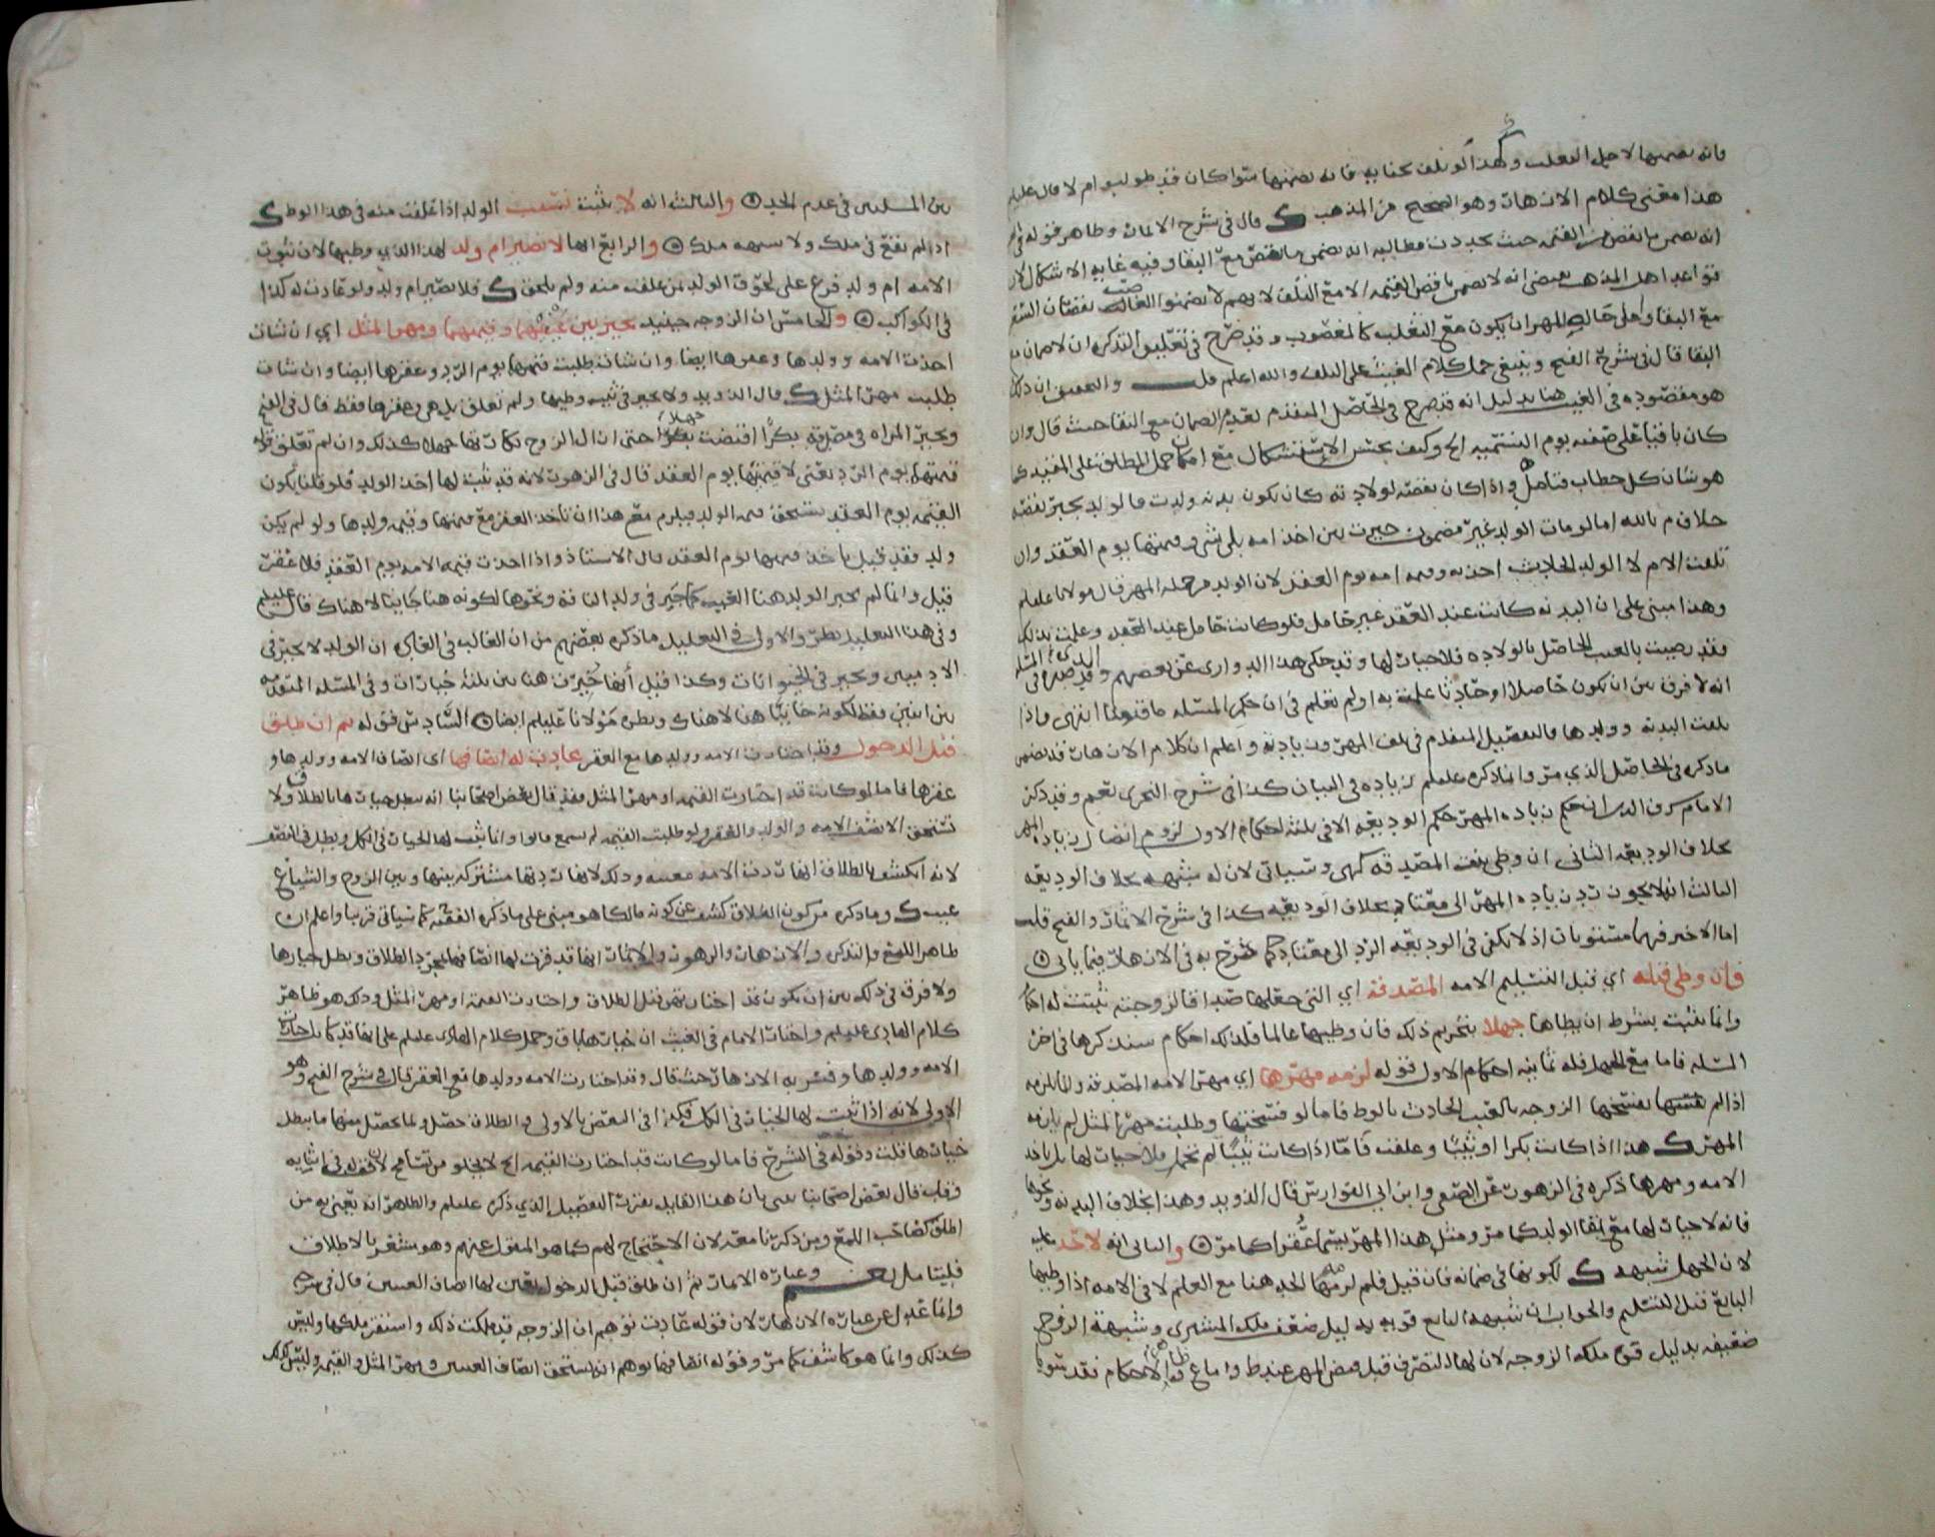 فانه يضمنها لاجل التغلب وكذا لو تلف بجنايه فانه يضمنها سوا كان قد طولب ام لا قال عليلم
هذا معنى كلام الازهار وهو الصحيح من المذهب ك قال في شرح الاثمار وظاهر قوله في
انه يضمن ما نقص من القيمه حيث تجددت مطالبه انه يضمن ما نقص مع البقا وفيه غايه الاشكال لان
قواعد اهل المذهب تقضي انه لا يضمن ناقص القيمه الا مع التلف لانهم لا يضمنوا الغاصب نقصان السعر
مع البقا واعلى حاله المهر ان يكون مع التغلب كالمغصوب وقد صرح في تعليق التذكره ان لا ضمان مع
البقا قال في شرح الفتح وينبغي حمل كلام الغيث على التلف والله اعلم قلت والتحقيق ان ذلك
هو مقصوده في الغيث هنا بدليل انه قد صرح في الحاصل المتقدم بعدم الضمان مع البقا حيث قال وان
كان باقيا على صفته يوم التسميه الخ وكيف يحسن الاستشكال مع امكان حمل المطلق على المقيد كما
هو شان كل خطاب فتامل و اذا كان نقصه لولاده كان يكون بدنه ولدت فالولد يجبر نقصه
خلاف م بالله اما لو مات الولد غير مضمون خيرت بين اخذ امه بلى شي وقيمتها يوم العقد وان
تلفت الام لا الولد الحادث اخذته وقيمه امه يوم العقد لان الولد من جمله المهر قال مولانا عليلم
وهذا مبني على ان البدنه كانت عند العقد غير حامل فلو كانت حامل عند العقد وعلمت بذلك
فقد رضيت بالعيب الحاصل بالولاده فلا خيار لها وقد حكى هذا الدواري عن بعضهم وقد ذكره في
انه لا فرق بين ان يكون حاصلا او حادثا علمت به او لم تعلم في ان حكم المسئله ما قدمنا انتهى واذا
تلفت البدنه وولدها فالتفصيل المتقدم في تلف المهر وزيادته واعلم ان كلام الازهار قد تضمن
ما ذكره في الحاصل الذي مر وانما ذكره عليلم زياده في البيان كذا في شرح النجري نعم وقد ذكر
الامام شرف الدين ان حكم زياده المهر حكم الوديعه الا في ثلثه احكام الاول لزوم ايصال زياده المهر
بخلاف الوديعه الثاني ان وطى بنت المصدقه كهي وسياتي لان له شبهه بخلاف الوديعه
الثالث انه لا يجوز رد زياده المهر الى معتاد بخلاف الوديعه كذا في شرح الاثمار والفتح قلت
اما الاخير فهما مستويان اذ لا يكفي في الوديعه الرد الى معتاد كما صرح به في الازهار فيما ياتي ۞
فان وطى قبله اي قبل التسليم الامه المصدقه اي التي جعلها صداقا لزوجته ثبتت له احكام
وانما تثبت بشرط ان يطاها جهلا بتحريم ذلك فان وطيها عالما فلذلك احكام سنذكرها في اخر
المسئله فاما مع الجهل فله ثمانيه احكام الاول قوله لزمه مهرها اي مهر الامه المصدقه وانما لزمه
اذا لم تفسخها الزوجه بالعيب الحادث بالوطى فاما لو فسختها وطلبت مهر المثل لم يلزمه
المهر ك هذا اذا كانت بكرا او ثيبا وعلقت فاما اذا كانت ثيبا لم تحمل فلا خيار لها بل تاخذ
الامه ومهرها ذكره في الزهور عن الصعيتري وابن ابي الفوارس قال الذويد وهذا بخلاف البدنه ونحوها
فانه لا خيار لها مع بقا الولد كما مر ومثل هذا المهر يسمى عقرا كما مر ۞ والثاني انه لا حد عليه
لان الجهل شبهه ك لكونها في ضمانه فان قيل فلم لزمه الحد هنا مع العلم لا في الامه اذا وطيها
البايع قبل التسليم والجواب ان شبهه البايع قويه بدليل ضعف ملك المشتري وشبهة الزوج
ضعيفه بدليل قوه ملك الزوجه لان لها التصرف قبل قبض المهر عند ط واما ع فظاهر الاحكام فقد سوى
بين المسلتين في عدم الحد ۞ والثالث انه لا يثبت نسب الولد اذا علقت منه في هذا الوطى ك
اذا لم تقع في ملك ولا شبهه ملك ۞ والرابع انها لا تصير ام ولد لهذا الذي وطيها لان ثبوت
الامه ام ولد فرع على لحوق الولد بمن علقت منه ولم يلحق ك فلا تصير ام ولد ولو عادت له كذا
في الكواكب ۞ والخامس ان الزوجه حينيد تخير بين عينهما وقيمتهما ومهر المثل اي ان شات
اخذت الامه وولدها وعقرها ايضا وان شات طلبت قيمتهما يوم الرد وعقرها ايضا وان شات
طلبت مهر المثل ك قال الذويد ولا تخير في ثيب وطيها ولم تعلق بل هي وعقرها فقط قال في الفتح
وتخير المراه في مصدقه بكرا افتضت جهلا حتى ازال الزوج بكارتها جهلا كذلك وان لم تعلق قوله
قيمتهما يوم الرد يعني لا قيمتها يوم العقد قال في الزهور لانه قد ثبت لها اخذ الولد فلو قلنا يكون
القيمه يوم العقد لم تستحق قيمه الولد فيلزم مع هذا ان تاخذ العقر مع قيمتها وقيمه ولدها ولو لم يكن
ولد فقد قيل تاخذ قيمتها يوم العقد قال الاستاذ واذا اخذت قيمه الامه يوم العقد فلا عقر
قيل وانما لم يجبر الولد هنا العيب كما جبر في ولد الناقه ونحوها لكونه هنا جانيا لا هناك قال عليلم
وفي هذا التعليل نظر والاولى في التعليل ما ذكره بعضهم من ان الغالب في العادي ان الولد لا يجبر في
الادميين ويجبر في الحيوانات وكذا قيل ايضا خيرت هنا بين ثلثه خيارات وفي المسئله المتقدمه
بين اثنين فقط لكونه جانيا هنا لا هناك ونظره مولانا عليلم ايضا ۞ السادس قوله ثم ان طلق
قبل الدخول وقد اختارت الامه وولدها مع العقر عادت له انصافها اي انصاف الامه وولدها و
عقرها فاما لو كانت قد اختارت القيمه او مهر المثل فقد قال بعض اصحابنا انه يبطل خيارها بالطلاق ولا
تستحق الا نصف الامه والولد والعقر ولو طلبت القيمه لم تسمع قالوا وانما ثبت لها الخيار في الكل وبطل في النصف
لانه انكشف بالطلاق انها ردت الامه معيبه وذلك لانها ردتها مشتركه بينها وبين الزوج والشياع
عيب ك وما ذكره من كون الطلاق كشف عن كونه مالكا هو مبني على ما ذكره الفقيه ح كما سياتي قريبا واعلم ان
ظاهر اللمع والتذكره والازهار والزهور والاثمار انها قد قررت لها انصافها بمجرد الطلاق وبطل خيارها
ولا فرق في ذلك بين ان يكون قد اختارت قبل الطلاق واختارت القيمه او مهر المثل وذلك هو ظاهر
كلام الهادي عليلم واختار الامام في الغيث ان خيارها باق وحمل كلام الهادي عليلم على انها قد كانت اختارت
الامه وولدها وفسر به الازهار حيث قال وقد اختارت الامه وولدها مع العقر قال في شرح الفتح وهو
الاولى لانه اذا ثبت لها الخيار في الكل فكذا في البعض بالاولى والطلاق حصل ولما يحصل منها ما يبطل
خيارها قلت وقوله في الشرح فاما لو كانت قد اختارت القيمه الخ لا يخلو من تسامح لان قوله في اثنايه
فقد قال بعض اصحابنا يبنى بان هذا القايل يعتبر التفصيل الذي ذكره عليلم والظاهر انه يعني به من
اطلق كصاحب اللمع ومن ذكرنا معه لان الاحتجاج لهم كما هو المنقول عنهم وهو مشعر بالاطلاق
فليتامل نعم وعباره الاثمار ثم ان طلق قبل الدخول تعين لها انصاف العينين قال في شرحه
وانما عدل عن عباره الازهار لان قوله عادت توهم ان الزوجه قد ملكت ذلك واستقر ملكها وليس
كذلك وانما هو كاشف كما مر وقوله انصافها يوهم انه يستحق انصاف العينين ومهر المثل والقيمه وليس كذلك